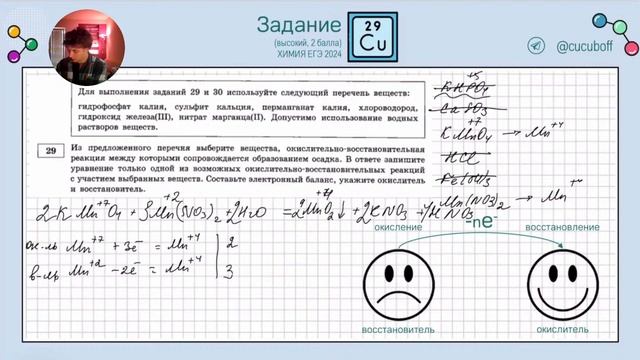 Задание
(высокий, 2 балла)
ХИМИЯ ЕГЭ 2024
29
Cu
@cucuboff
Для выполнения заданий 29 и 30 используйте следующий перечень веществ:
гидрофосфат калия, сульфит кальция, перманганат калия, хлороводород,
гидроксид железа(III), нитрат марганца(II). Допустимо использование водных
растворов веществ.
29
Из предложенного перечня выберите вещества, окислительно-восстановительная
реакция между которыми сопровождается образованием осадка. В ответе запишите
уравнение только одной из возможных окислительно-восстановительных реакций
с участием выбранных веществ. Составьте электронный баланс, укажите окислитель
и восстановитель.
+5
K2HPO4
CaSO3
+7
KMnO4 → Mn+4
HCl
Fe(OH)3
Mn(NO3)2 → Mn+4
2KMn+7O4 + 3Mn+2(NO3)2 + 2H2O = MnO2↓ + 2KNO3 + 4HNO3
ок-ль Mn+7 + 3e- = Mn+4 | 2
в-ль Mn+2 - 2e- = Mn+4 | 3
окисление
-ne-
восстановление
восстановитель
окислитель